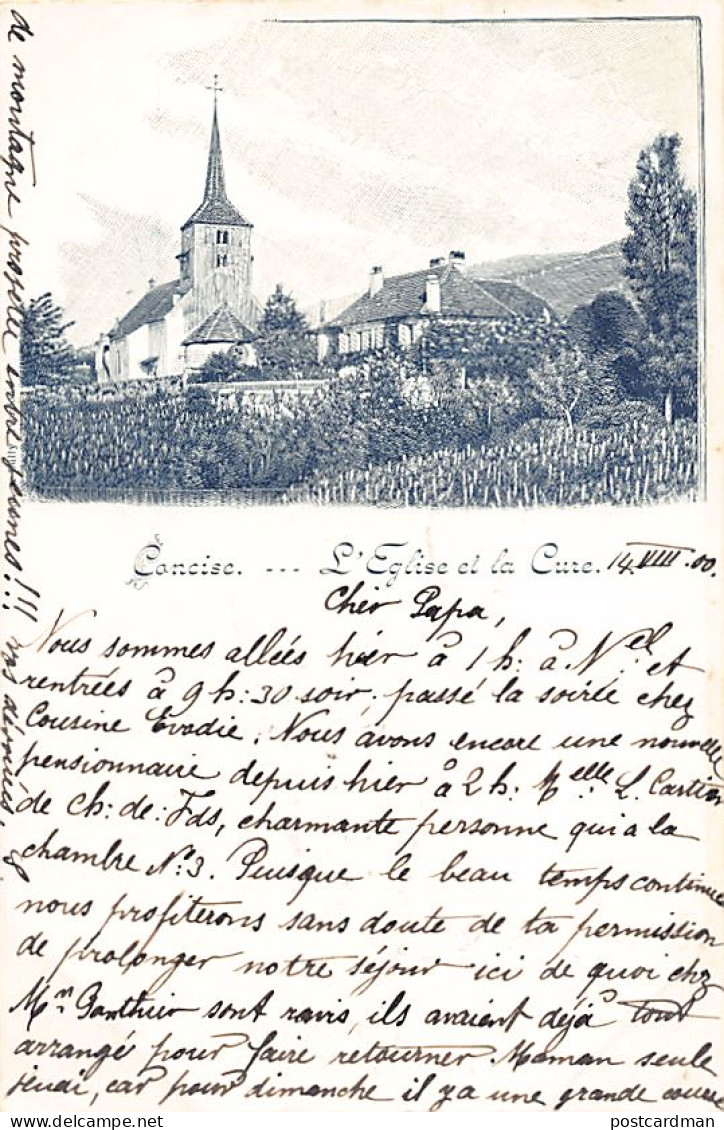 Concise. --- L'Eglise et la Cure. 14. VIII. 00.
Chèr Papa,
Nous sommes allées hièr à 1 h: à N:el et
rentrées à 9 h: 30 soir, passé la soirée chez
Cousine Evodie. Nous avons encore une nouvelle
pensionnaire depuis hier à 2 h: M:elle L. Cartier
de Ch: de: Fds, charmante personne qui a la
chambre N:o 3. Puisque le beau temps continue
nous profiterons sans doute de ta permission
de prolonger notre séjour ici de quoi chez
M:n Ganthier sont ravis, ils avaient déjà tout
arrangé pour faire retourner Maman seule
jeudi, car pour dimanche il y a une grande course
de montagne projetée entre jeunes!!!
vos dévouées
postcardman